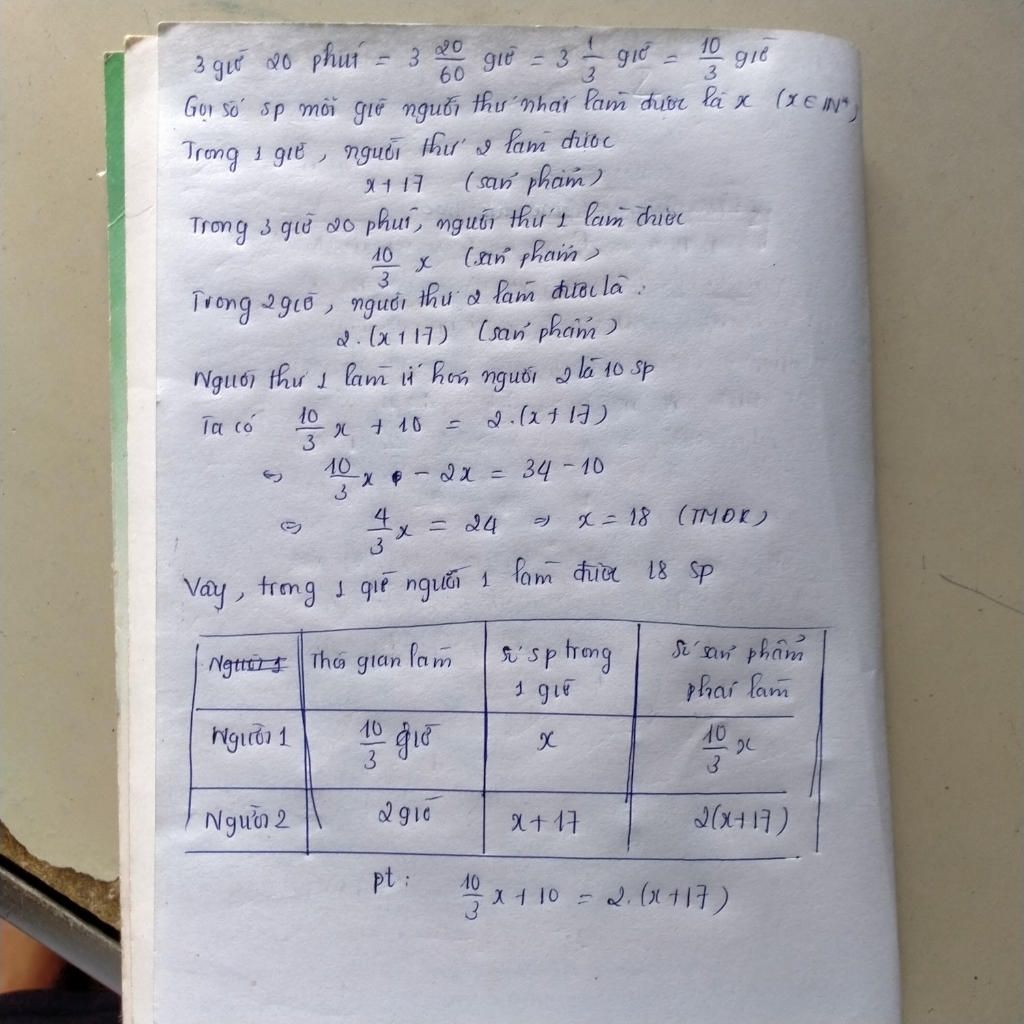 3 giờ 20 phút = 3 20/60 giờ = 3 1/3 giờ = 10/3 giờ
Gọi số sp mỗi giờ người thứ nhất làm được là x (x ∈ IN*)
Trong 1 giờ, người thứ 2 làm được
x + 17 (sản phẩm)
Trong 3 giờ 20 phút, người thứ 1 làm được
10/3 x (sản phẩm)
Trong 2 giờ, người thứ 2 làm được là :
2.(x+17) (sản phẩm)
Người thứ 1 làm ít hơn người 2 là 10 sp
Ta có 10/3 x + 10 = 2.(x+17)
⇔ 10/3 x - 2x = 34 - 10
⇔ 4/3 x = 24 ⇒ x = 18 (TMĐK)
Vậy, trong 1 giờ người 1 làm được 18 sp
Người 1 Thời gian làm Số sp trong 1 giờ Số sản phẩm phải làm
Người 1 10/3 giờ x 10/3 x
Người 2 2 giờ x + 17 2(x+17)
pt : 10/3 x + 10 = 2.(x+17)